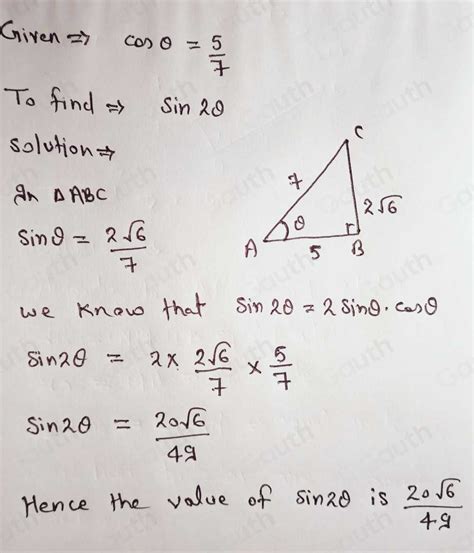 Given ⇒ cos θ = 5/7
To find ⇒ sin 2θ
Solution ⇒
In △ ABC
Sin θ = 2√6/7
C
7
2√6
θ
A
5
B
we know that Sin 2θ = 2 Sinθ . cosθ
Sin2θ = 2 × 2√6/7 × 5/7
Sin2θ = 20√6/49
Hence the value of sin2θ is 20√6/49